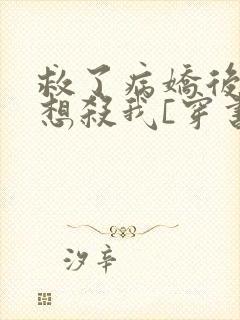 救了病嬌後
想殺我[穿書
汐辛